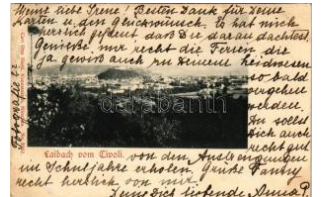 Meine liebe Irene! Besten Dank für Deine
Karten u. den Glückwunsch. Es hat mich
herzlich gefreut daß Du daran dachtest.
Genieße nur recht die Ferien die
ja gewiß auch zu Deinem
so bald
vergehen
werden.
Du sollst
Dich auch
recht gut
Laibach vom Tivoli.
von den Anstrengungen
im Schuljahre erholen. Grüße Fanny
recht herzlich von mir
Deine Dich liebende Anna P.
darabanth